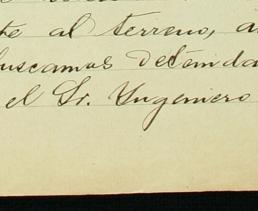 te al terreno, a
buscamos detenida
el Sr. Yngeniero